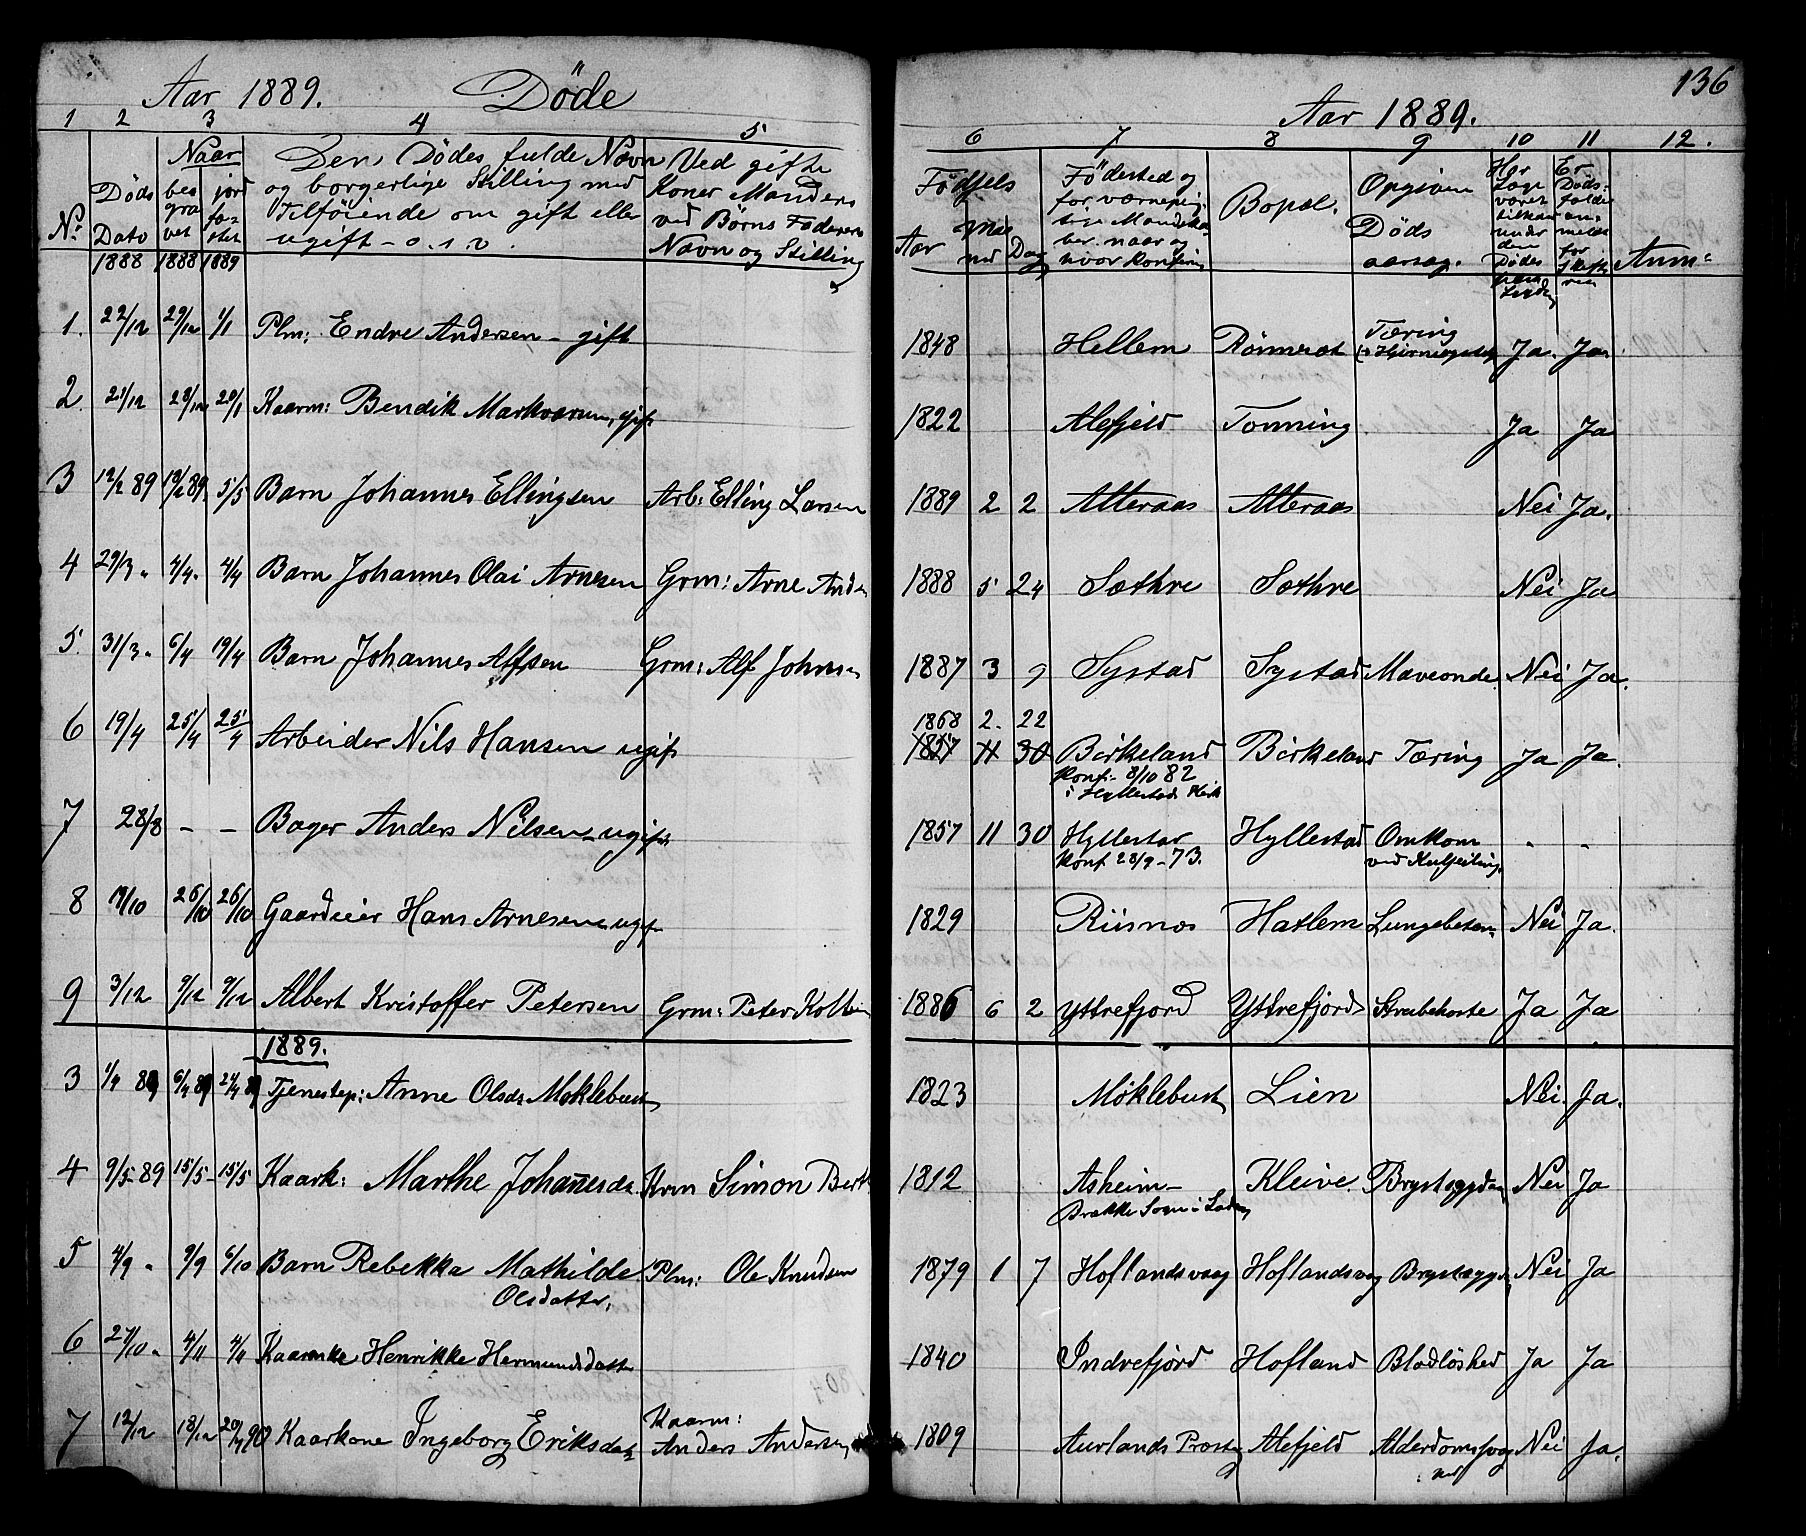 Aar 1889. Döde
1 2 3 4 5
No Döds Dato Naar begravet jordfæstet
Den Dödes fulde Navn og borgerlige Stilling med Tilföiende om gift eller ugift - o.s.v.
Ved gifte Koner Manders ved Börns Faderens Navn og Stilling
1888 1888 1889
1. 22/12 29/12 1/1 Plm: Endre Andersen - gift
2. 21/12 28/12 20/1 Kaarm: Bendik Markvarsen, gift
3 12/2 89 19/2 89. 5/5 Barn Johannes Ellingsen Arb: Elling Larsen
4 29/3 " 4/4. 4/4 Barn Johannes Olai Arnesen Grm: Arne Ander
5. 31/3 " 6/4 19/4 Barn Johannes Alfsen Grm: Alf Johns
6 19/4 25/4 25/4 Arbeider Nils Hansen ugift
7 28/8 - - Bager Anders Nilsen - ugift
8 19/10 26/10 26/10 Gaardeier Hans Arnesen ugif
9 3/12 9/12 9/12 Albert Kristoffer Petersen Grm: Peter
1889.
3 1/4 89 6/4 89 21/4 89 Tjenestep: Anne Olsd: Møklebust
4 9/5-89 15/5- 15/5 Kaark: Marthe Johannesda. Krm Simon Bert
5 4/9 " 9/9 6/10 Barn Rebekka Mathilde Plm: Ole Knudsen
Olsdatter.
6 27/10 " 4/11 4/11 Kaarenke Henrikke Hermundsdatt
7 12/12 18/12 20/4 90 Kaarkone Ingeborg Eriksda Kaarm:
Anders Andersen
136
Aar 1889.
6 7 8 9 10 11 12.
Födsels Aar Maaned Dag
Födested og for værnepligtige Mandskaber naar og hvor Konfirm
Bopæl.
Opgiven Döds aarsag.
Har Læge været tilkaldt under den Dödes
Er Dödsfaldet anmeldt for Skifter
Anm:
1848 Hellem Rönneset Tæring
Ja. Ja.
1822 Alefjeld Tonning Ja Ja
1889 2 2 Atteraas Atteraas Nei Ja.
1888 5 24 Sæthre Sæthre Nei Ja
1887 3 9 Systad Systad Maveonde. Nei Ja.
1868 2. 22
1857 11 30 Birkeland Birkeland Tæring Ja Ja.
Konf. 8/10 82
i Hyllestad Kirk
1857 11 30 Hyllestad Hyllestad Omkom - -
Konf 28/9 - 73. ved Kulseiling.
1829 Riisnæs Hatlem Lungebeten Nei Ja.
1886 6 2 Yttrefjord Yttrefjord Strubehoste Ja Ja
1823 Møklebust Lien Nei. Ja.
1812 Asheim - Kleive. Brystsygdom Nei Ja
Brække Sogn i Ladv
1879 1 7 Hoflandsvaag Hoflandsvg Brystsygd Nei Ja
1840 Indrefjord Hofland Blodlöshed Ja Ja
1809 Aurlands Præsteg Alefjeld Alderdomssvag Nei Ja.
hed